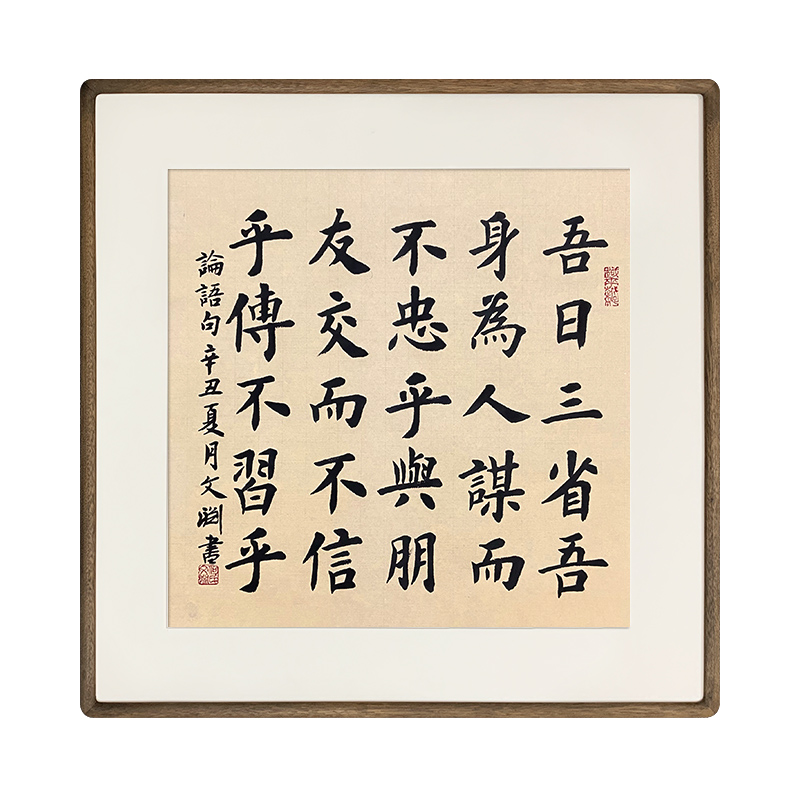 吾日三省吾
身為人謀而
不忠乎與朋
友交而不信
乎傳不習乎
論語句辛丑夏月文渊書